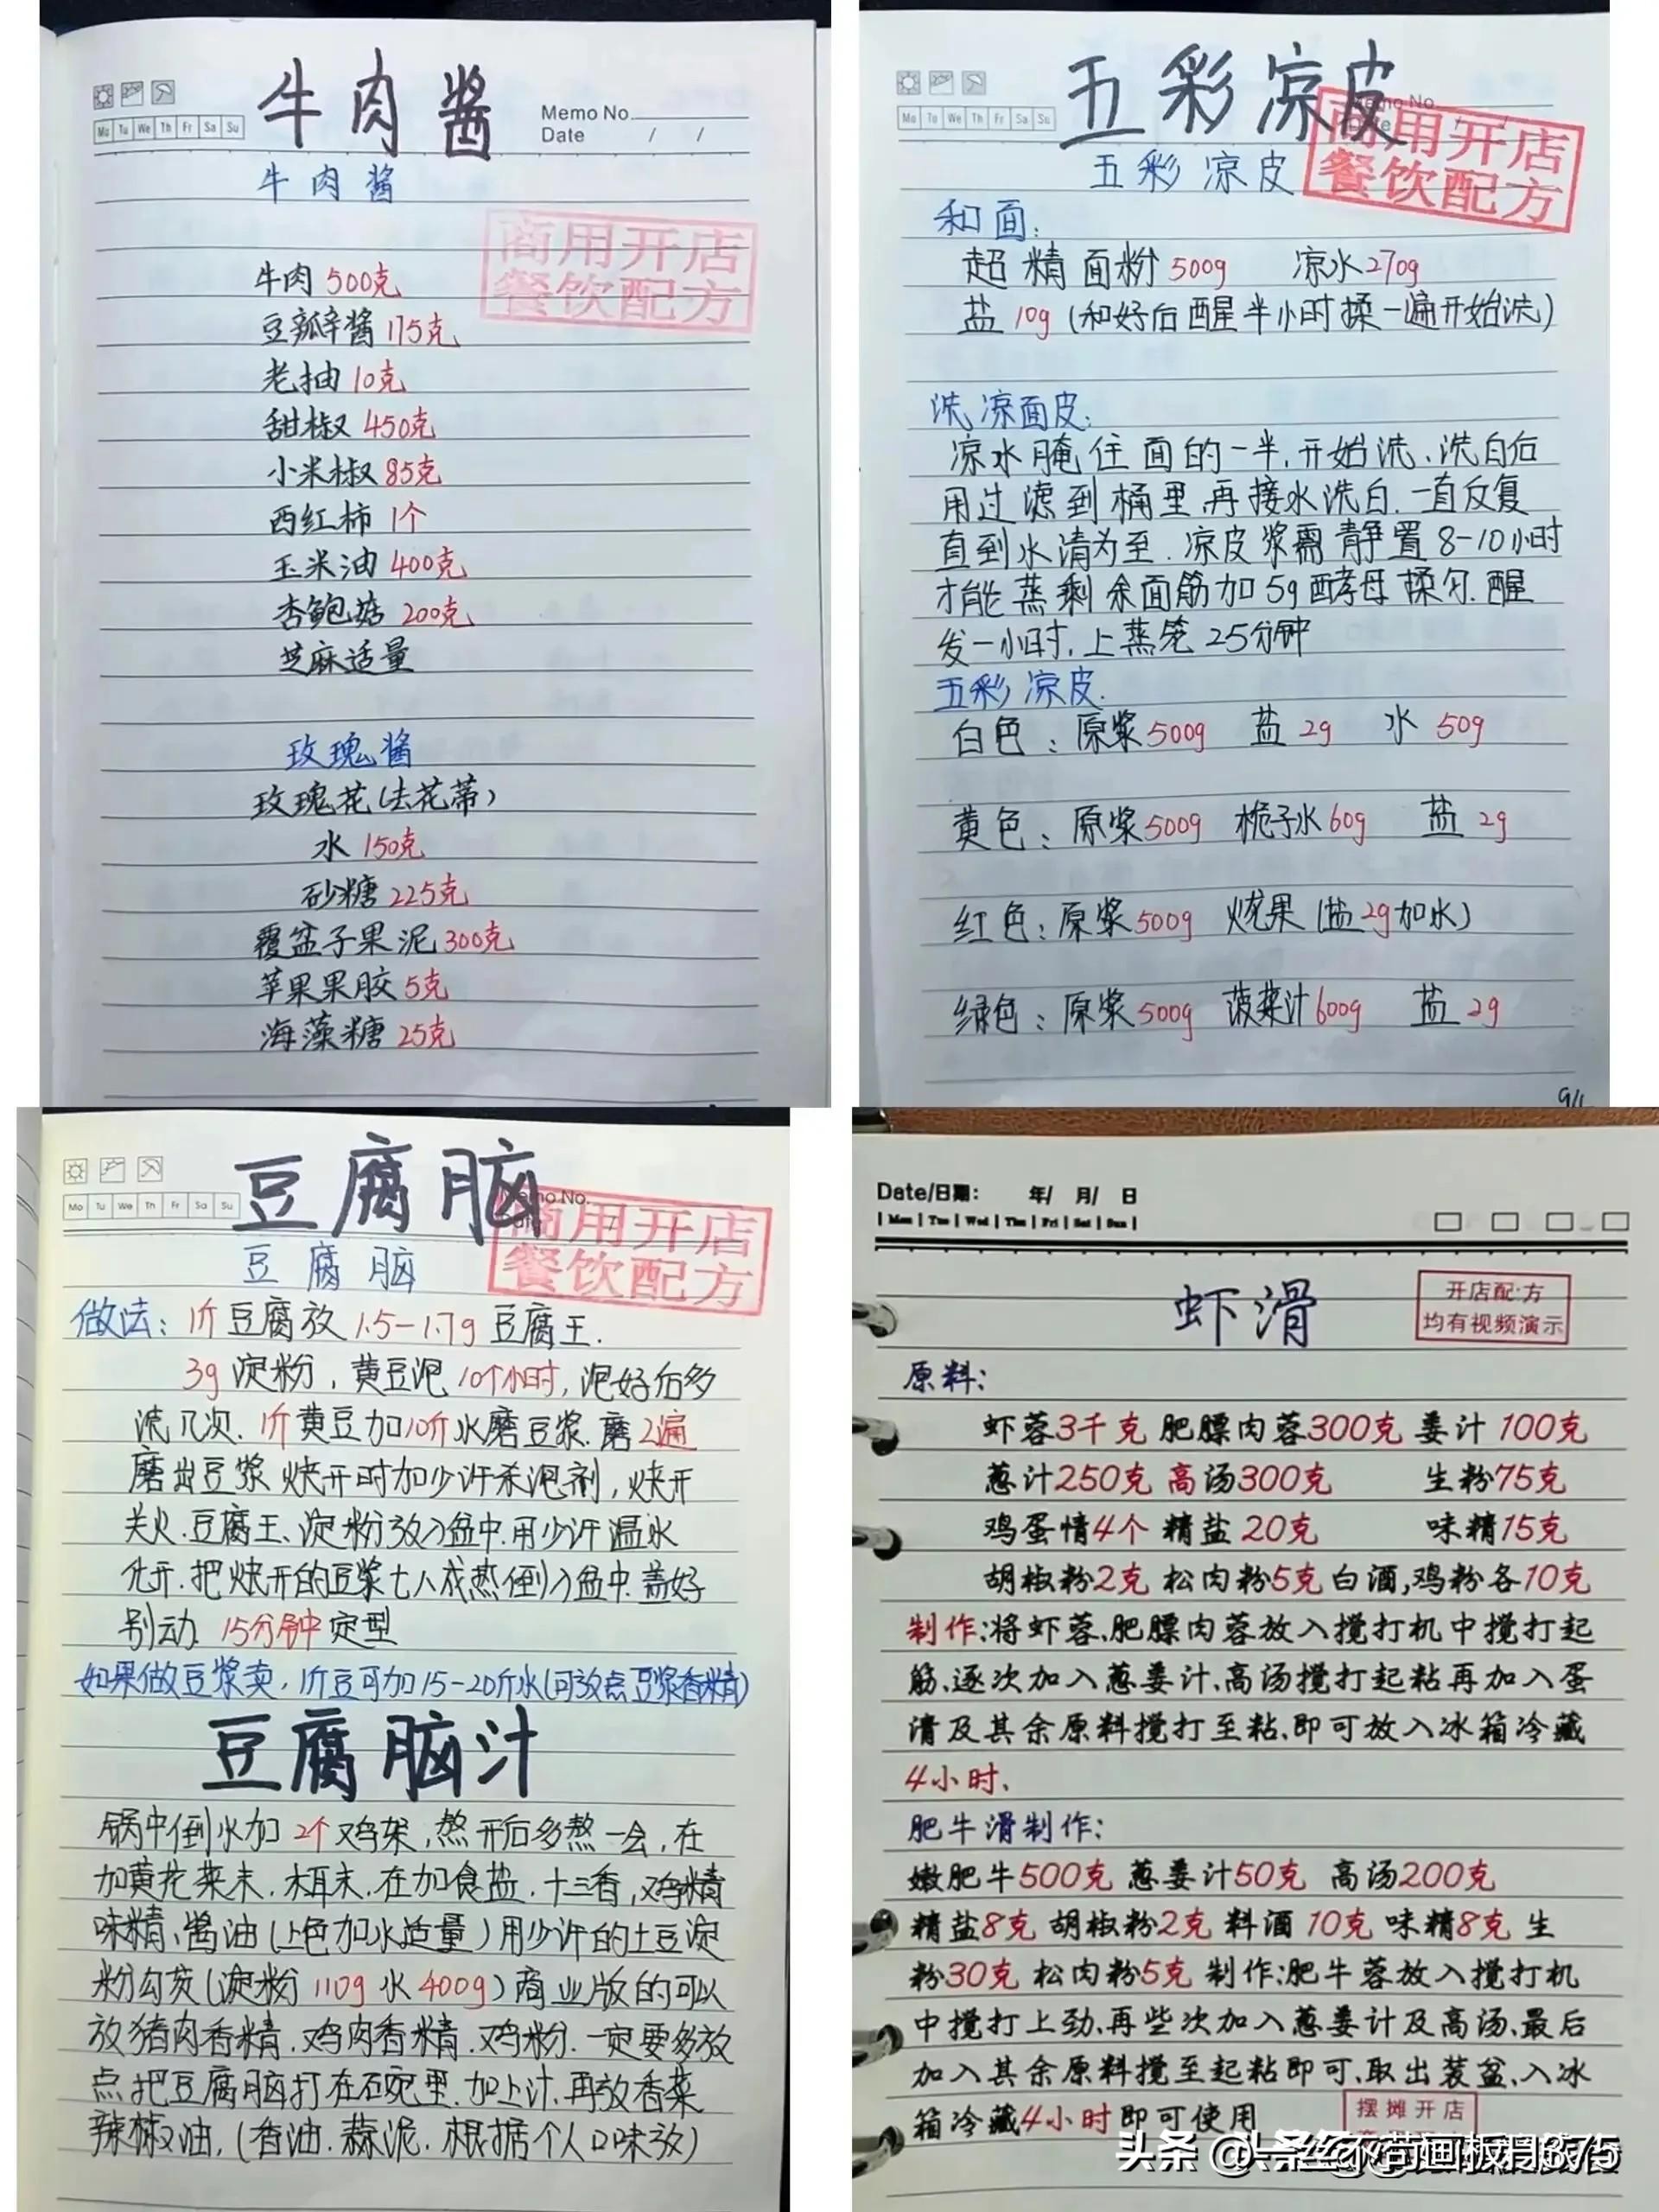 牛肉酱
Memo No.
Mo Tu We Th Fr Sa Su
Date / /
牛肉酱
商用开店
餐饮配方
牛肉 500克
豆瓣酱 175克
老抽 10克
甜椒 450克
小米椒 85克
西红柿 1个
玉米油 400克
杏鲍菇 200克
芝麻适量
玫瑰酱
玫瑰花(去花蒂)
水 150克
砂糖 225克
覆盆子果泥 300克
苹果果胶 5克
海藻糖 25克
五彩凉皮
Memo No.
Mo Tu We Th Fr Sa Su
五彩凉皮
商用开店
餐饮配方
和面:
超精面粉 500g 凉水270g
盐 10g (和好后醒半小时揉一遍开始洗)
洗凉面皮:
凉水腌住面的一半.开始洗、洗白后
用过滤到桶里.再接水洗白.一直反复
直到水清为至.凉皮浆需静置8-10小时
才能蒸剩余面筋加5g酵母揉匀.醒
发一小时,上蒸笼25分钟
五彩凉皮.
白色:原浆500g 盐 2g 水 50g
黄色:原浆500g 栀子水60g 盐 2g
红色:原浆500g 火龙果(盐2g加水)
绿色:原浆500g 菠菜汁600g 盐 2g
豆腐脑
Memo No.
Mo Tu We Th Fr Sa Su
豆腐脑
商用开店
餐饮配方
做法:1斤豆腐放1.5-1.7g豆腐王.
3g淀粉,黄豆泡10个小时,泡好后多
洗几次.1斤黄豆加10斤水磨豆浆.磨2遍
磨出豆浆烧开时加少许杀泡剂,烧开
关火.豆腐王、淀粉放入盆中.用少许温水
化开.把烧开的豆浆七八成热倒入盆中.盖好
别动.15分钟定型
如果做豆浆卖,1斤豆可加15-20斤水(可放点豆浆香精)
豆腐脑汁
锅中倒水加2个鸡架,熬开后多熬一会,在
加黄花菜末.木耳末.在加食盐.十三香,鸡精
味精、酱油(上色加水适量)用少许的土豆淀
粉勾芡(淀粉110g水400g)商业版的可以
放猪肉香精.鸡肉香精.鸡粉.一定要多放
点把豆腐脑打在石碗里.加上汁.再放香菜
辣椒油,(香油.蒜泥.根据个人口味放)
Date/日期: 年/ 月/ 日
Mon Tue Wed Thu Fri Sat Sun
虾滑
开店配方
均有视频演示
原料:
虾蓉3千克 肥膘肉蓉300克 姜汁100克
葱汁250克 高汤300克 生粉75克
鸡蛋情4个 精盐20克 味精15克
胡椒粉2克 松肉粉5克 白酒,鸡粉各10克
制作:将虾蓉、肥膘肉蓉放入搅打机中搅打起
筋、逐次加入葱姜汁、高汤搅打起粘再加入蛋
清及其余原料搅打至粘、即可放入冰箱冷藏
4小时、
肥牛滑制作:
嫩肥牛500克 葱姜汁50克 高汤200克
精盐8克 胡椒粉2克 料酒10克 味精8克 生
粉30克 松肉粉5克 制作:肥牛蓉放入搅打机
中搅打上劲、再些次加入葱姜计及高汤、最后
加入其余原料搅至起粘即可、取出装盆、入冰
箱冷藏4小时即可使用
摆摊开店
头条